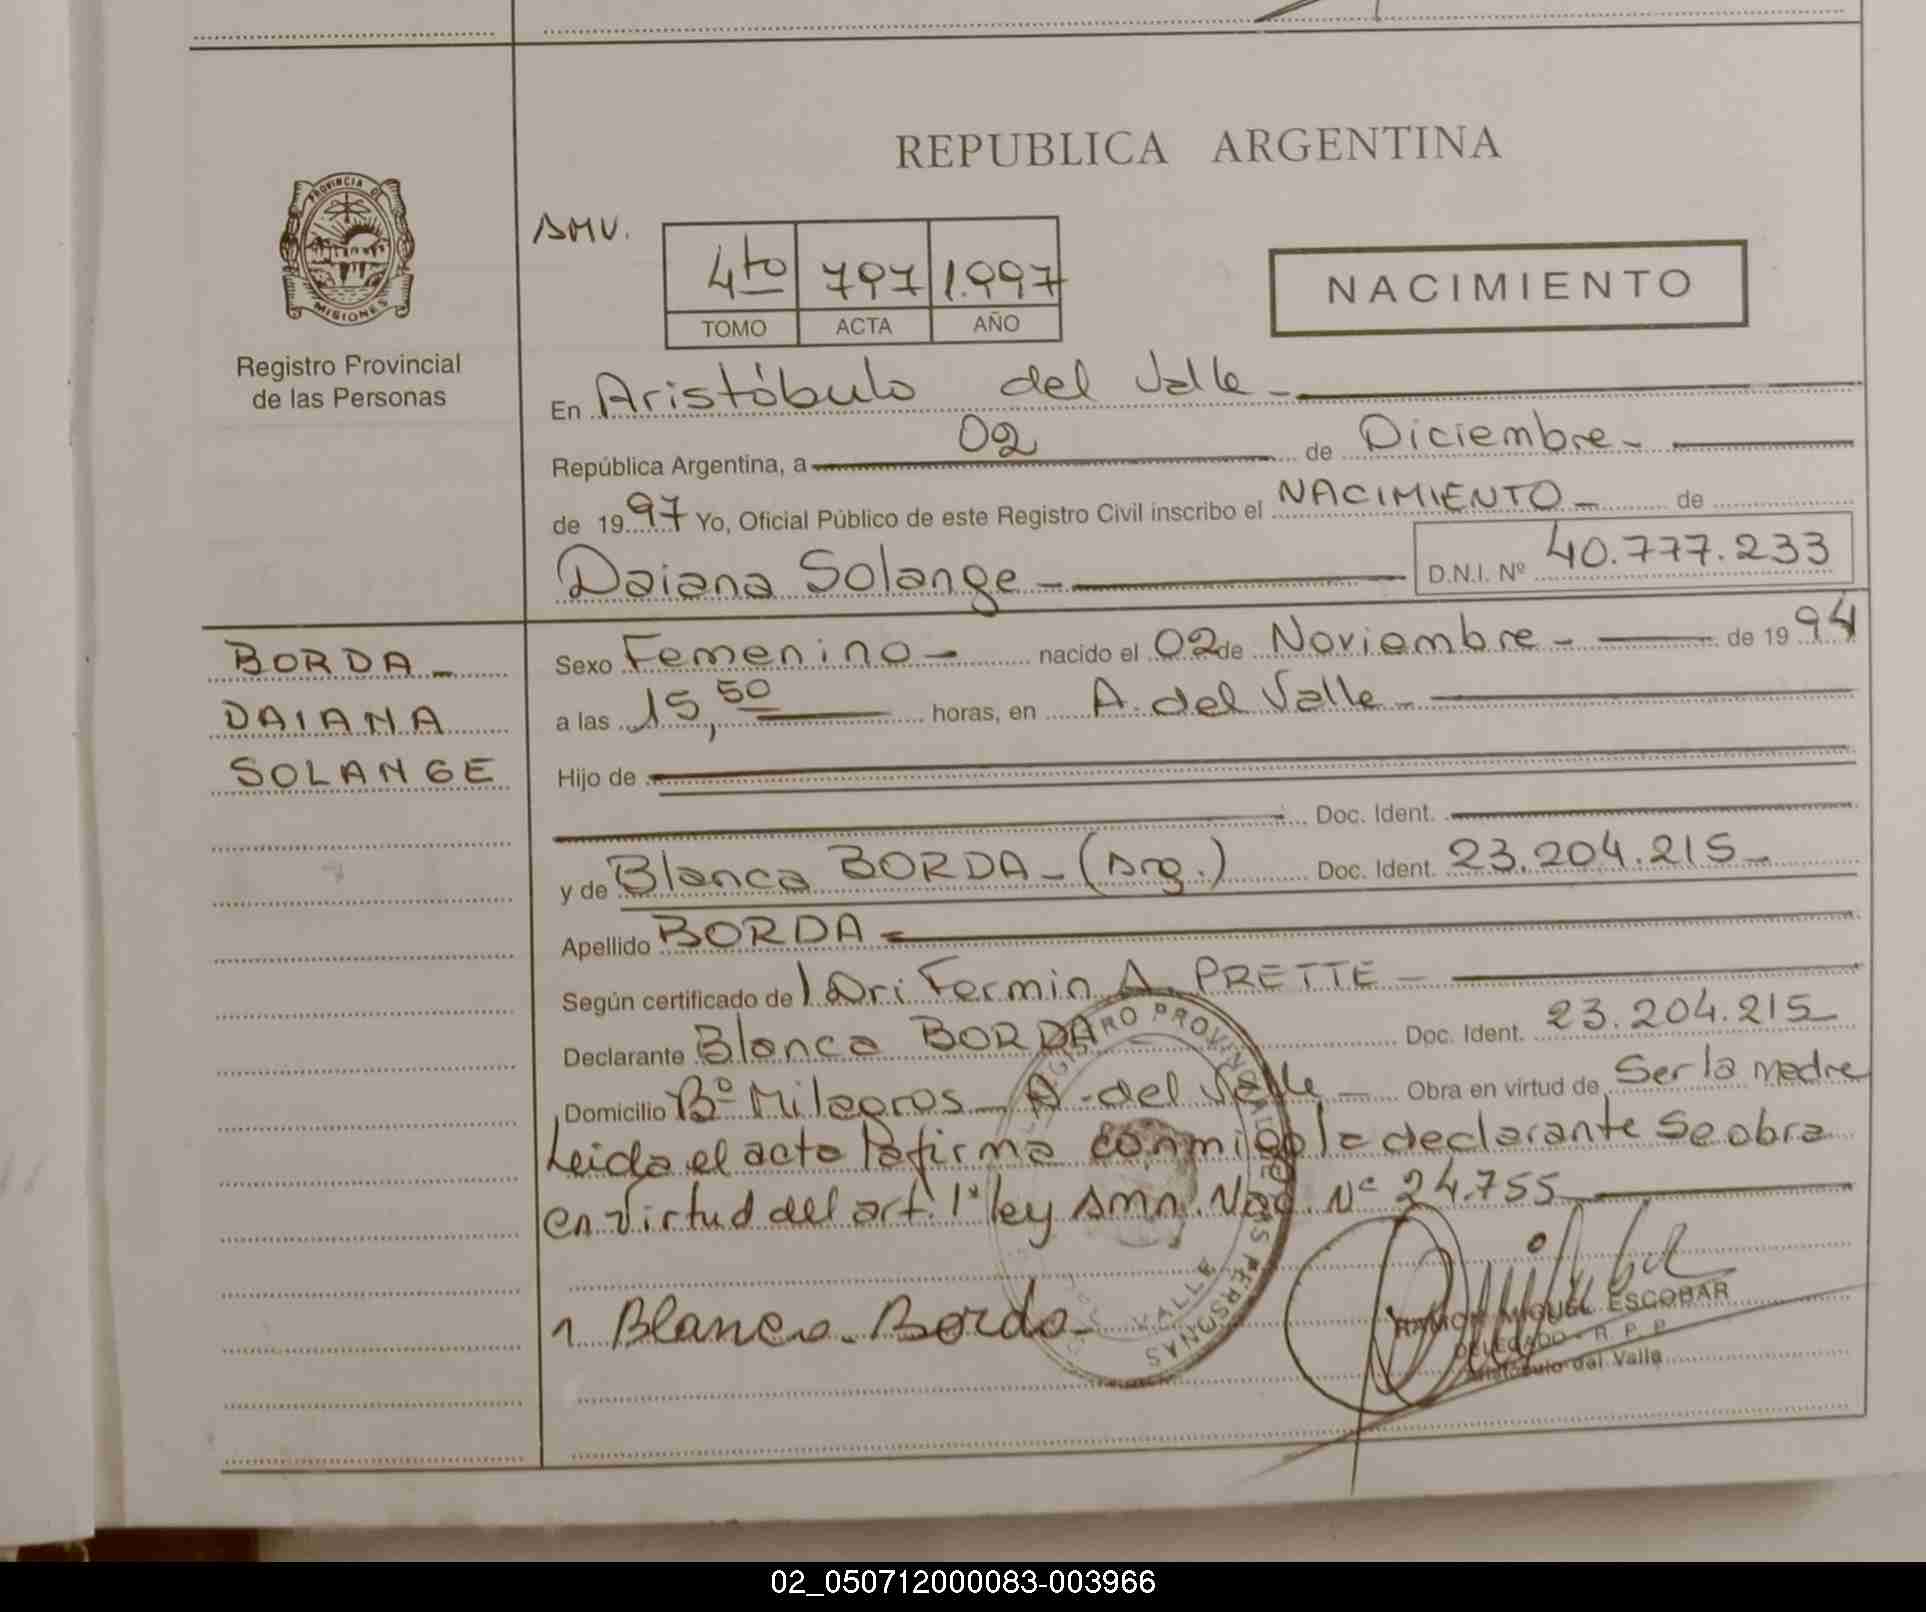 REPUBLICA ARGENTINA
PROVINCIA DE
MISIONES
Registro Provincial
de las Personas
AMV.
4to 797 1.997
TOMO ACTA AÑO
NACIMIENTO
En Aristóbulo del Valle
República Argentina, a 02 de Diciembre
de 1997 Yo, Oficial Público de este Registro Civil inscribo el NACIMIENTO de
Daiana Solange D.N.I. Nº 40.777.233
BORDA
DAIANA
SOLANGE
Sexo Femenino nacido el 02 de Noviembre de 1994
a las 15,50 horas, en A. del Valle
Hijo de
Doc. Ident.
y de Blanca BORDA (Arg.) Doc. Ident. 23.204.215
Apellido BORDA
Según certificado de Fermin A. PRETTE
Declarante Blanca BORDA Doc. Ident. 23.204.215
Domicilio Bº Milagros A. del Valle Obra en virtud de Ser la madre
Leida el acta la firma conmigo la declarante Se obra
en virtud del art. 1º ley Amn. Nac. Nº 24.755
Blanca Borda
REGISTRO PROVINCIAL DE LAS PERSONAS
DEL VALLE
RAMON MIGUEL ESCOBAR
DELEGADO - R. P. P.
Aristóbulo del Valle
02_050712000083-003966